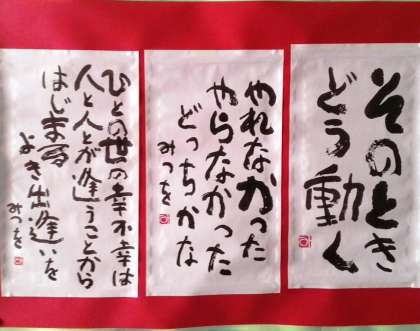 そのとき
どう動く
やれなかった
やらなかった
どっちかな
みつを
ひとの世の幸不幸は
人と人とが逢うことから
はじまる
よき出逢いを
みつを